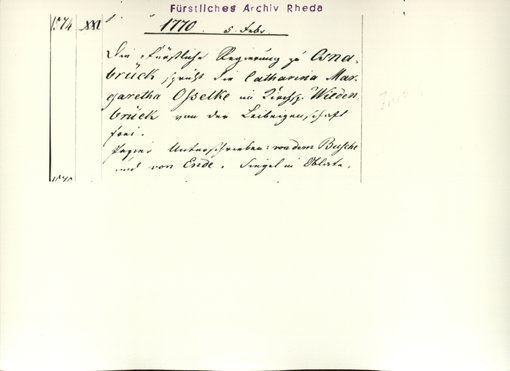 Fürstliches Archiv Rheda
1074 XXI 1770 5 Febr.
Die Fürstliche Regierung zu Osna-
brück spricht die Catharina Mar-
garetha Osselke im Kirchsp. Wieden-
brück von der Leibeigenschaft
frei.
Papier Unterschrieben: von dem Busche
und von Ende. Siegel in Oblate.